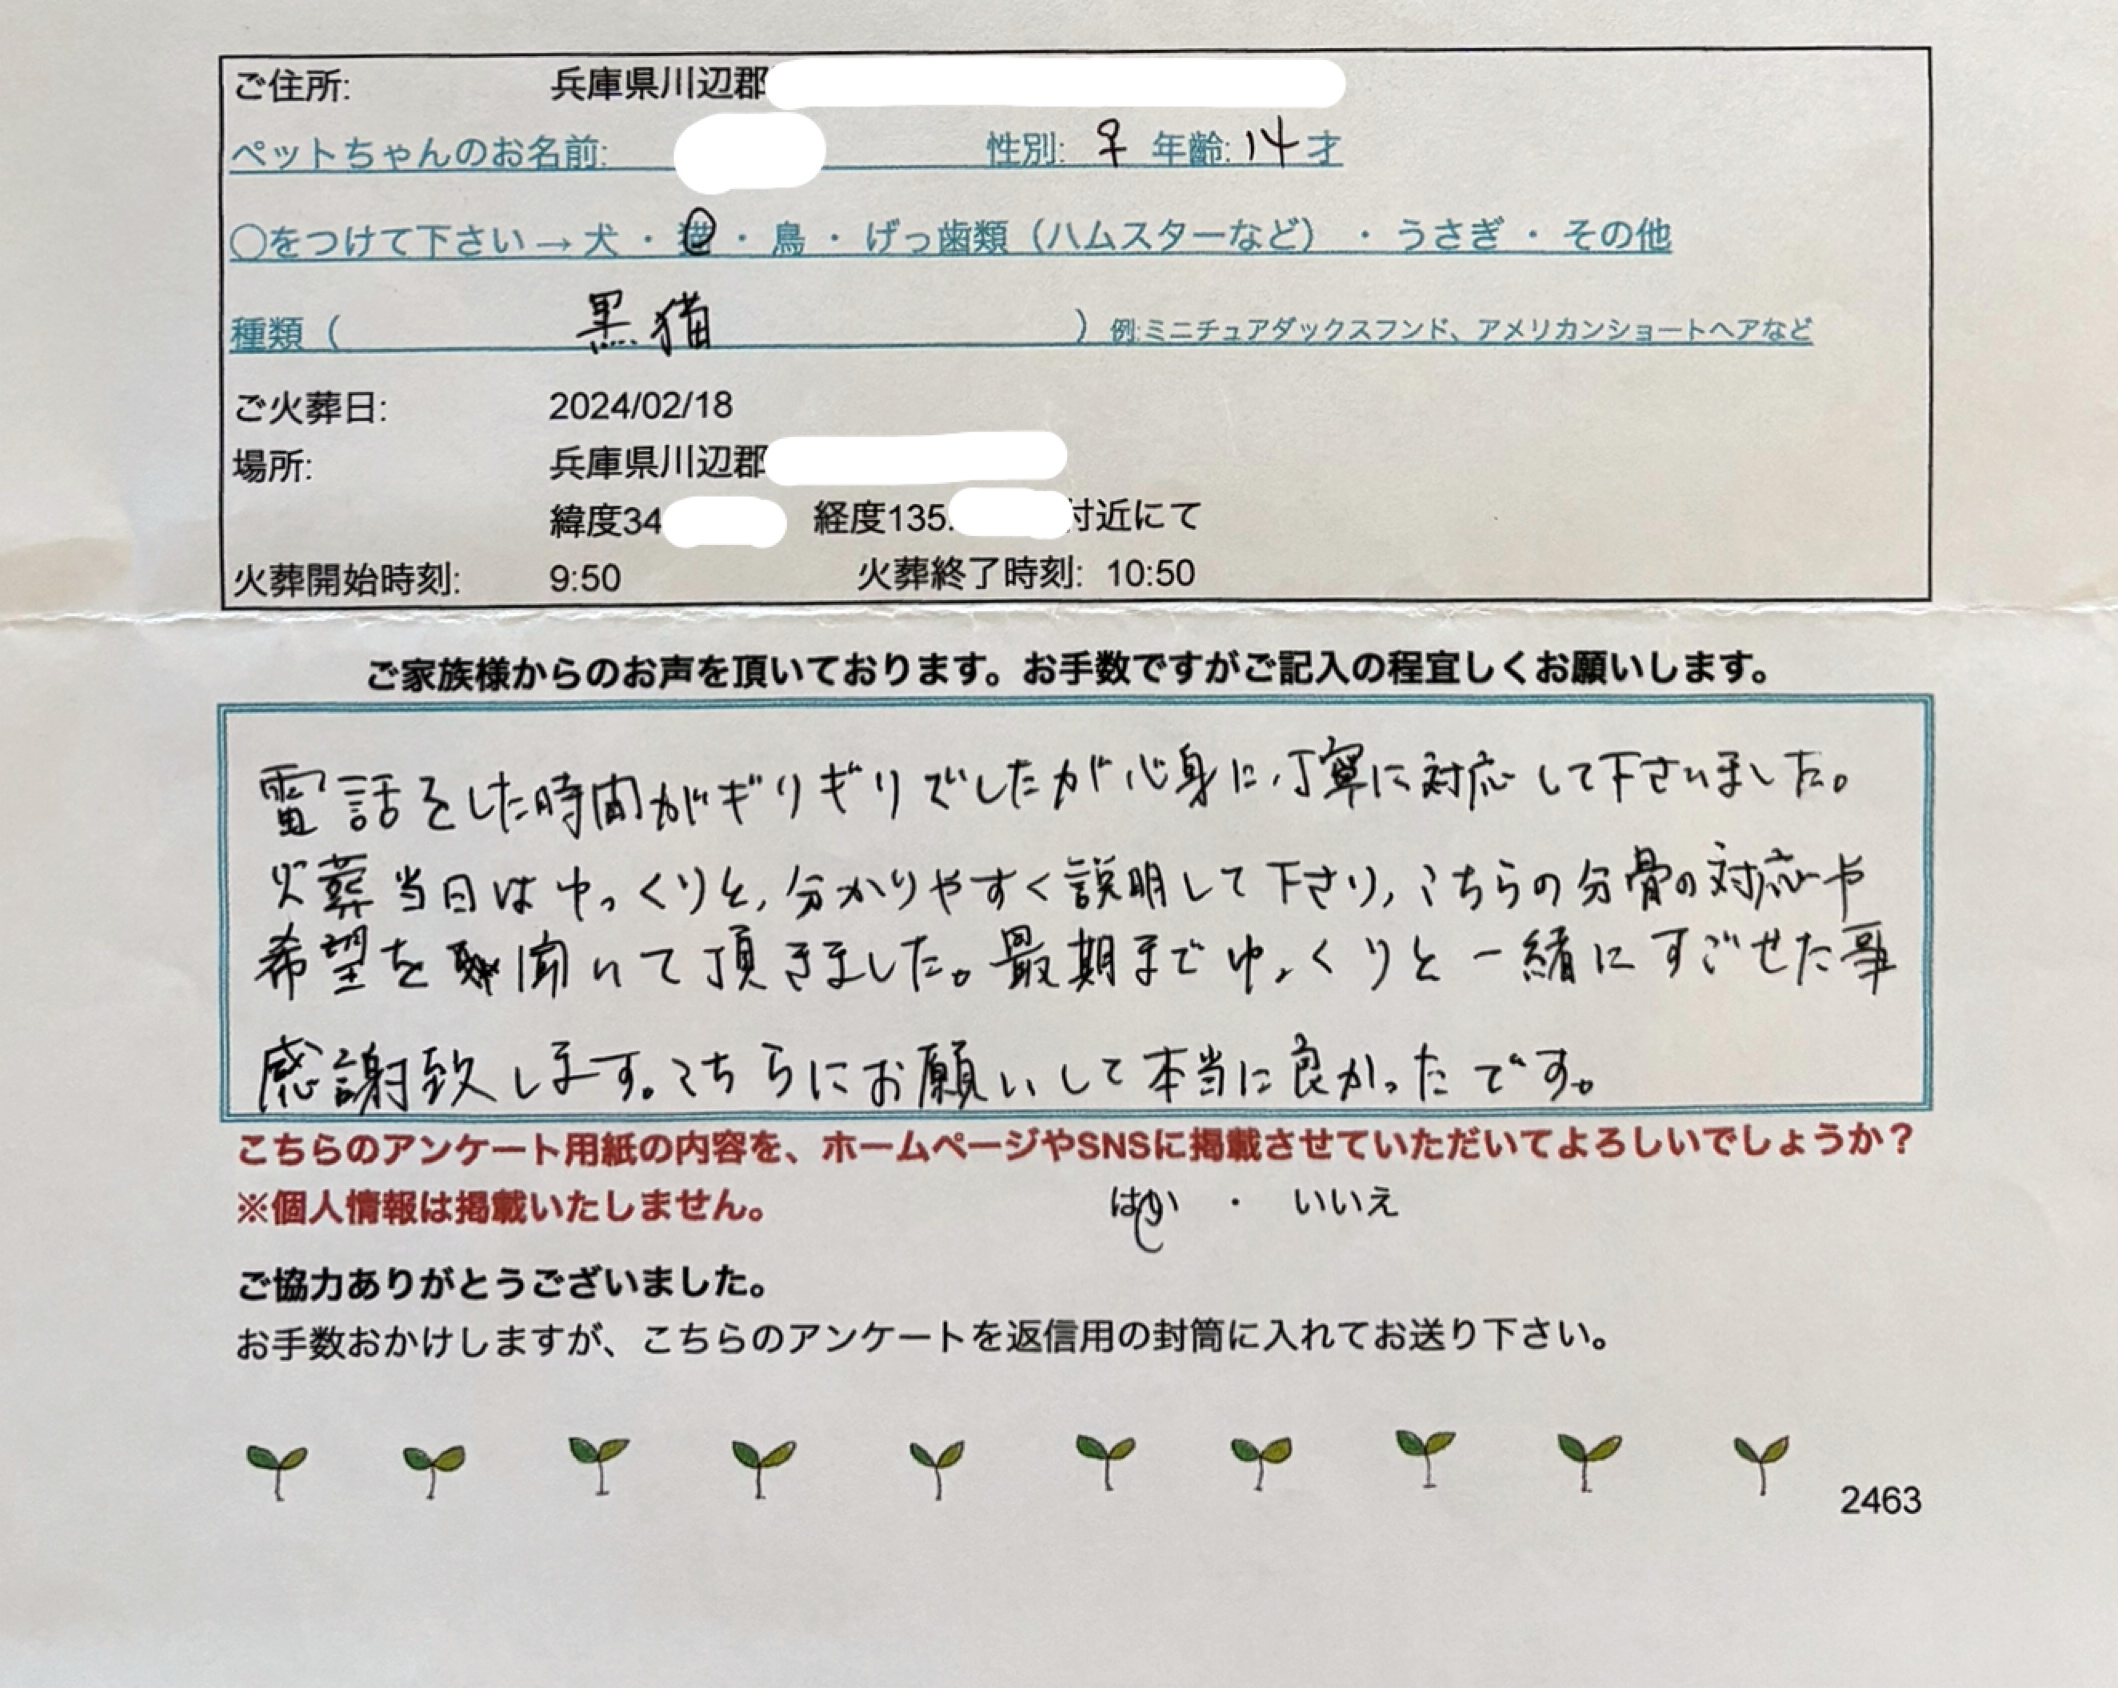 ご住所: 兵庫県川辺郡
ペットちゃんのお名前: 性別: ♀ 年齢: 14才
○をつけて下さい→犬・猫・鳥・げっ歯類（ハムスターなど）・うさぎ・その他
種類（ 黒猫 ）例:ミニチュアダックスフンド、アメリカンショートヘアなど
ご火葬日: 2024/02/18
場所: 兵庫県川辺郡
緯度34 経度135. 付近にて
火葬開始時刻: 9:50 火葬終了時刻: 10:50
ご家族様からのお声を頂いております。お手数ですがご記入の程宜しくお願いします。
電話をした時間がギリギリでしたが心身に丁寧に対応して下さいました。
火葬当日はゆっくりと,分かりやすく説明して下さり,こちらの分骨の対応や
希望を聞いて頂きました。最期までゆっくりと一緒にすごせた事
感謝致します。こちらにお願いして本当に良かったです。
こちらのアンケート用紙の内容を、ホームページやSNSに掲載させていただいてよろしいでしょうか？
※個人情報は掲載いたしません。 はい ・ いいえ
ご協力ありがとうございました。
お手数おかけしますが、こちらのアンケートを返信用の封筒に入れてお送り下さい。
2463